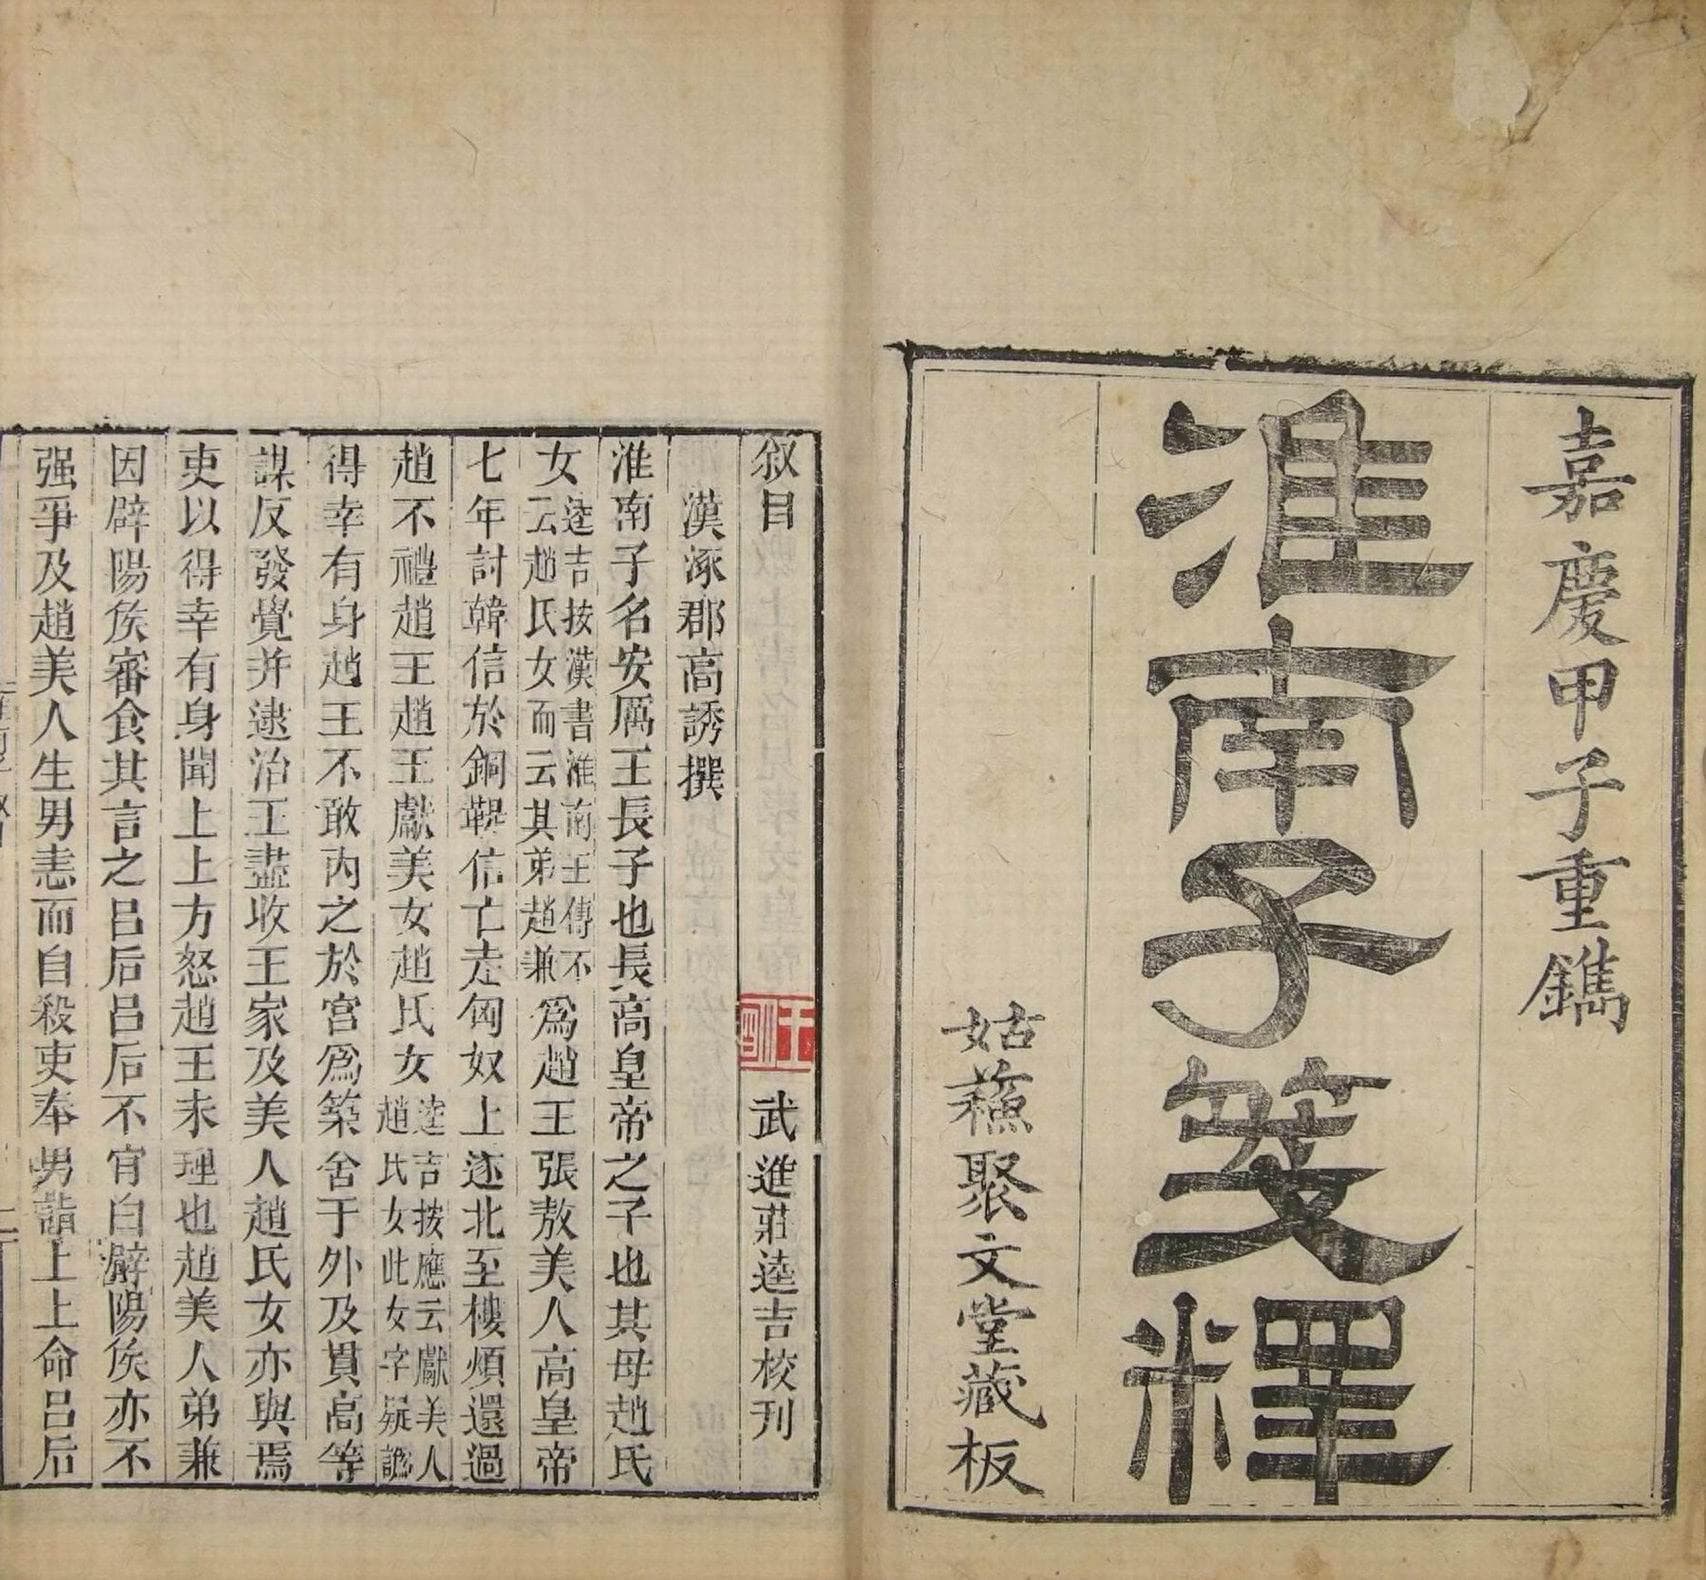 嘉慶甲子重鐫
淮南子箋釋
姑蘓聚文堂藏板
叙目
武進莊逵吉校刊
漢涿郡高誘撰
淮南子名安厲王長子也長高皇帝之子也其母趙氏
女逵吉按漢書淮南王傳不云趙氏女而云其弟趙兼為趙王張敖美人高皇帝
七年討韓信於銅鞮信亡走匈奴上逐北至樓煩還過
趙不禮趙王趙王獻美女趙氏女逵吉按應云獻美人趙氏女此女字疑譌
得幸有身趙王不敢內之於宮為築舍于外及貫高等
謀反發覺并逮治王盡收王家及美人趙氏女亦與焉
吏以得幸有身聞上上方怒趙王未理也趙美人弟兼
因辟陽矦審食其言之吕后吕后不肎白辟陽矦亦不
强爭及趙美人生男恚而自殺吏奉男詣上上命吕后